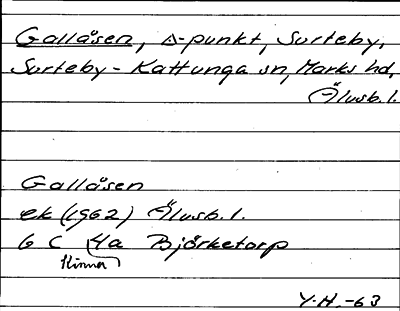 Gallåsen, △-punkt, Surteby,
Surteby-Kattunga sn, Marks hd,
Älvsb. l.
Gallåsen
ek (1962) Älvsb. l.
6 C 4a Björketorp
Kinna
Y.H. -63